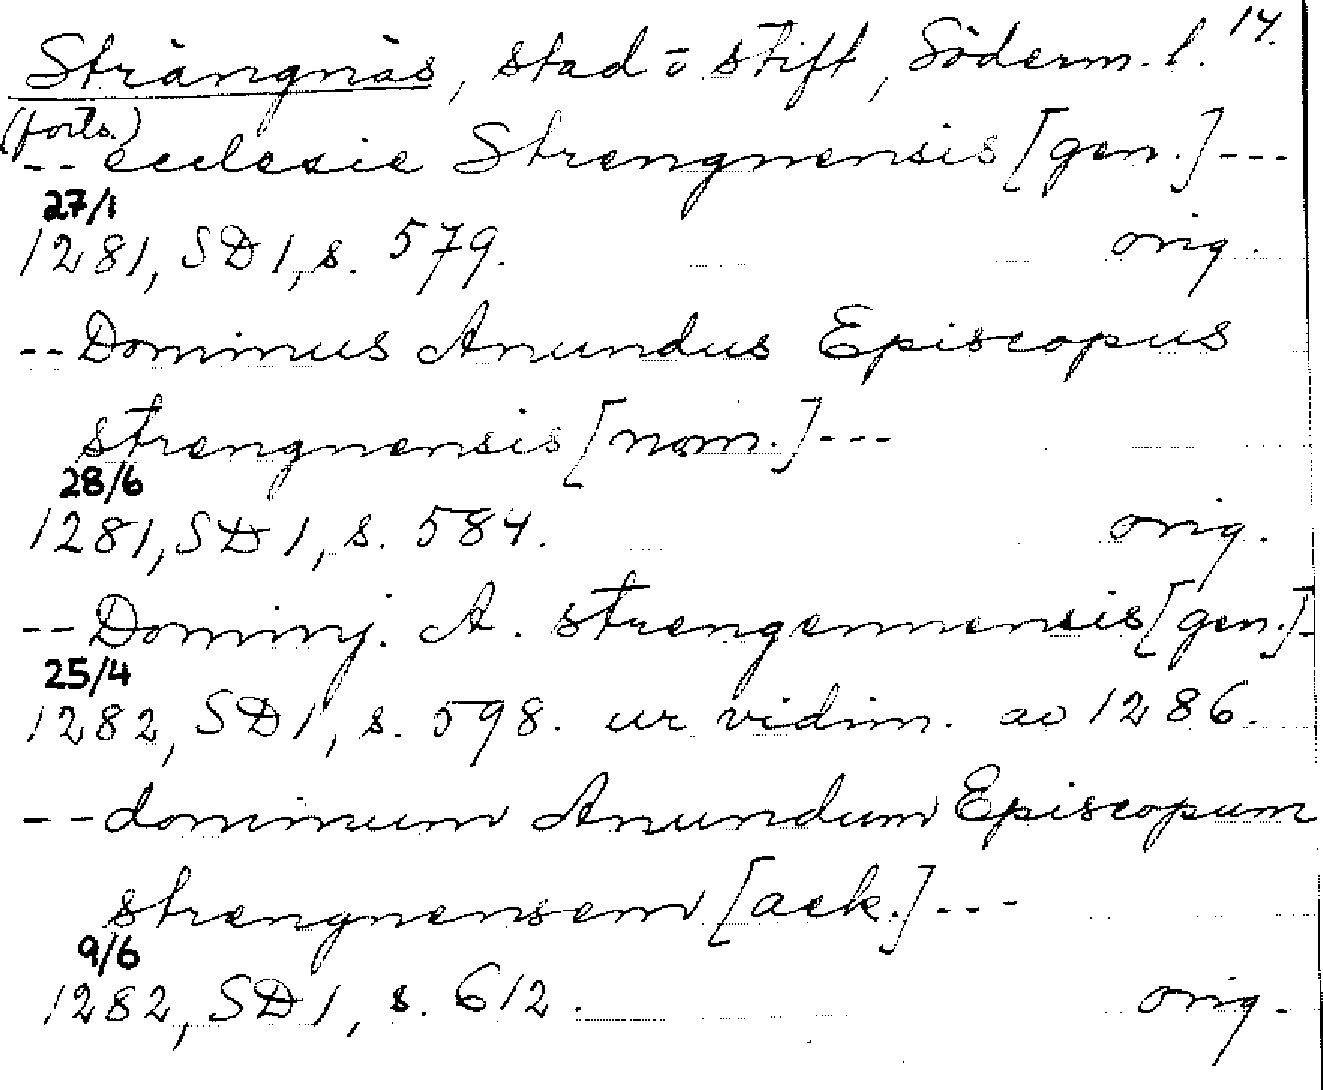 Strängnäs, stad o stift, Söderm. l. 14.
(forts.)
-- ecclesie Strengnensis [gen.] ---
27/1
1281, SD 1, s. 579. orig.
-- Dominus Anundus Episcopus
strengnensis [nom.] ---
28/6
1281, SD 1, s. 584. orig.
-- Dominj. A. strengennensis [gen.] -
25/4
1282, SD 1, s. 598. ur vidim. ao 1286.
-- dominum Anundum Episcopum
strengnensem [ack.] ---
9/6
1282, SD 1, s. 612. orig.